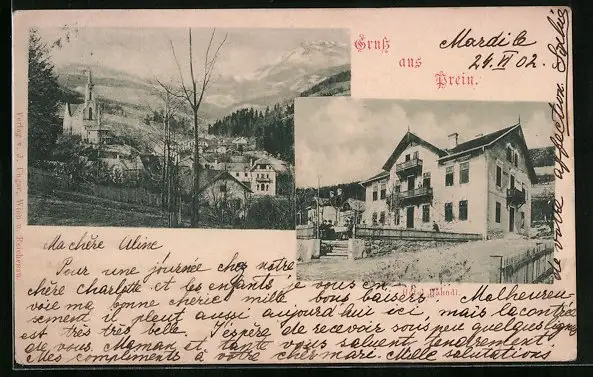 Gruß
aus
Prein.
Mardi le
24. VI 02.
Verlag v. J. Ungar, Wien u. Reichenau.
Ma chère Aline
Pour une journée chez notre
chère Charlotte et les enfants je vous en-
voie ma bonne chérie mille bons baisers. Malheureu
sement il pleut aussi aujourd'hui ici, mais la contrée
est très très belle. J'espère de recevoir sous peu quelques lign
de vous. Maman et tante vous saluent tendrement.
Mes compliments à votre cher mari. Mille salutations
de votre affection